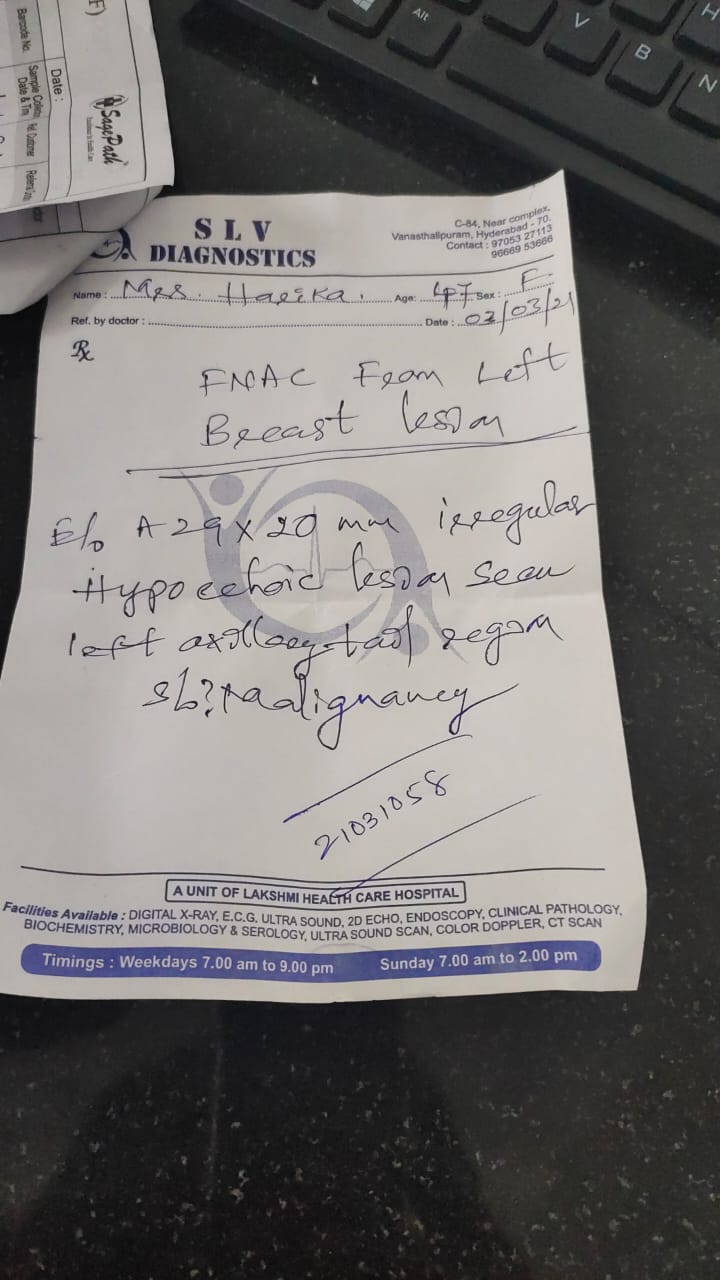 Alt
V
B
N
H
F)
SagePath
Date :
Barcode No.
Sample
Date & Tim
S L V
DIAGNOSTICS
C-84, Near complex,
Vanasthalipuram, Hyderabad - 70.
Contact : 97053 27113
96669 53666
Name : Mrs. Harika. Age: 47 Sex : F
Ref. by doctor : Date : 02/03/21
Rx
FNAC From Left
Breast lesion
E/o A 29 x 20 mm irregular
Hypoechoic lesion seen
left axillary tail region
s/o ? Malignancy
21031058
A UNIT OF LAKSHMI HEALTH CARE HOSPITAL
Facilities Available : DIGITAL X-RAY, E.C.G. ULTRA SOUND, 2D ECHO, ENDOSCOPY, CLINICAL PATHOLOGY,
BIOCHEMISTRY, MICROBIOLOGY & SEROLOGY, ULTRA SOUND SCAN, COLOR DOPPLER, CT SCAN
Timings : Weekdays 7.00 am to 9.00 pm Sunday 7.00 am to 2.00 pm